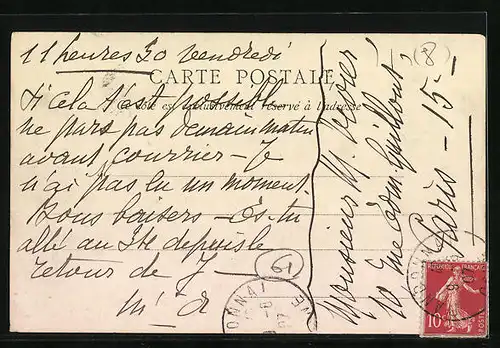 11 heures 30 vendredi
CARTE POSTALE
Ce côté est exclusivement réservé à l'adresse
Si cela t'est possible
ne pars pas demain matin
avant courrier - Je
n'ai pas lu un moment.
Bons baisers - Es-tu
allé au depuis le
retour de J -
M' A
61
(8)
Monsieur M.
10 rue Edm. Guillout,
Paris - 15 -
10
POSTES